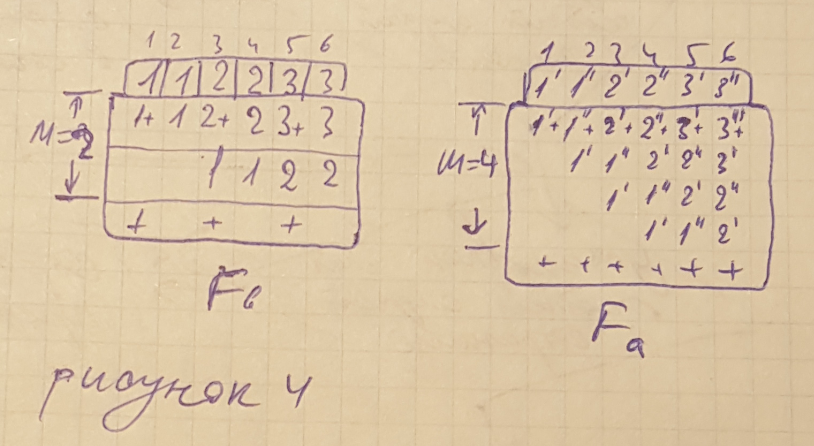 1 2 3 4 5 6
1 1 2 2 3 3
M=2
1+ 1 2+ 2 3+ 3
1 1 2 2
+ + +
Fб
1 2 3 4 5 6
1' 1" 2' 2" 3' 3"
M=4
1'+ 1"+ 2'+ 2"+ 3'+ 3"+
1' 1" 2' 2" 3'
1' 1" 2' 2"
1' 1" 2'
+ + + + + +
Fa
рисунок 4